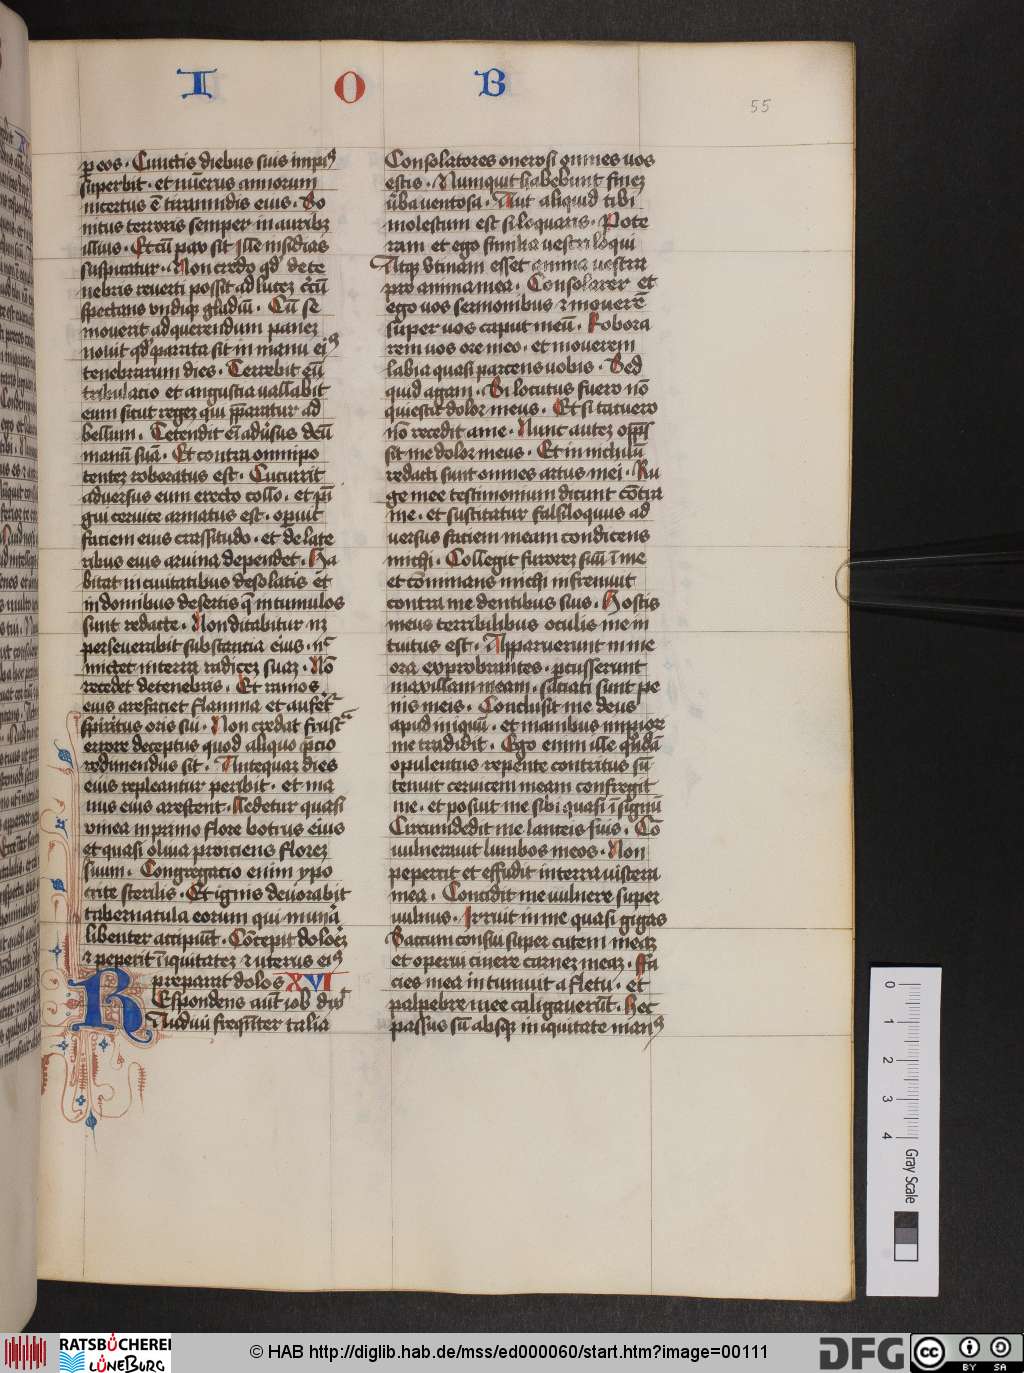 I O B
55
p eos . Cunctis diebus suis impiꝰ
superbit . et nūerus annorum
incertus ē tirannidis eius . So
nitus terroris semper in auribꝫ
illius . Et cū pax sit ille insidias
suspicatur . Non credo qđ de te
nebris reuerti possit ad lucez c̄cū
spectans vndiqꝫ gladiū . Cū se
mouerit ad querendum panez
nouit qđ parata sit in manu eiꝰ
tenebrarum dies . Terrebit eū
tribulacio et angustia vallabit
eum sicut regez qui p̄paratur ad
bellum . Tetendit em̄ adūsus deū
manū suā . Et contra omnipo
tentez roboratus est . Cucurrit
aduersus eum erecto collo . et pī
gui ceruice armatus est . operuit
faciem eius crassitudo . et de late
ribus eius aruina dependet . Ha
bitat in ciuitatibus desolatis et
in domibus desertis q̄ in tumulos
sunt redacte . Non ditabitur nꝫ
perseuerabit substantia eius . nꝫ
mittet in terra radicez suaz . Nō
recedet de tenebris . Et ramos
eius arefaciet flamma et aufet᷑
spiritus oris sui . Non credat frust᷑
errore deceptus quod aliquo p̄cio
redimendus sit . Antequaz dies
eius repleantur peribit . et ma
nus eius arescent . Ledetur quasi
vinea in primo flore botrus eius
et quasi oliua proiciens florez
suum . Congregacio enim ypo
crite sterilis . Et ignis deuorabit
tabernacula eorum qui mun᷑a
libenter accipiūt . Cōcepit dolorez
⁊ peperit īiquitatez ⁊ uterus eiꝰ
preparat dolos XVI
REspondens aūt iob dixit
Audiui frequēter talia
Consolatores onerosi omnes vos
estis . Numquit habebunt finez
v̄ba ventosa . Aut aliquid tibi
molestum est si loquaris . Pote
ram et ego similia vestri loqui
Atqꝫ vtinam esset anima vestra
pro anima mea . Consolarer et
ego vos sermonibus ⁊ mouerē
super vos caput meū . Robora
rem vos ore meo . et mouerem
labia quasi parcens vobis . Sed
quid agam . Si locutus fuero nō
quiescit dolor meus . Et si tacuero
nō recedit a me . Nunc autez opp̄s
sit me dolor meus . Et in nichilū
redacti sunt omnes artus mei . Ru
ge mee testimonium dicunt cōtra
me . et suscitatur falsiloquus ad
versus faciem meam condicens
michi . Collegit furorez suū ī me
et commans michi infremuit
contra me dentibus suis . Hostis
meus terribilibus oculis me in
tuitus est . Apparuerunt in me
ora exprobrantes . percusserunt
maxillam meam . saciati sunt pe
nis meis . Conclusit me deus
apud iniquū . et manibus impioꝝ
me tradidit . Ego enim ille quōdā
opulentus repente contritus sū
tenuit ceruicem meam confregit
me . et posuit me sibi quasi ī signū
Circumdedit me lanceis suis . Cō
uulnerauit lumbos meos . Non
pepercit et effudit in terra viscera
mea . Concidit me vulnere super
vulnus . Irruit in me quasi gigas
Saccum consui super cutem meaz
et operui cinere carnez meaz . Fa
cies mea intumuit a fletu . et
palpebre mee caligauerūt . Hec
passus sū absqꝫ iniquitate manꝰ
0
1
2
3
4
Gray Scale
RATSBÜCHEREI
LÜNEBURG
© HAB http://diglib.hab.de/mss/ed000060/start.htm?image=00111
DFG
CC BY SA